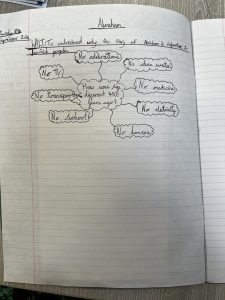 Abraham
WALT: To understand why the story of Abraham is important to
Jewish people.
No celebrations
No clean water
No TV
No medicine
How was life
different 4000
years ago?
No transport
No electricity
No school
No houses